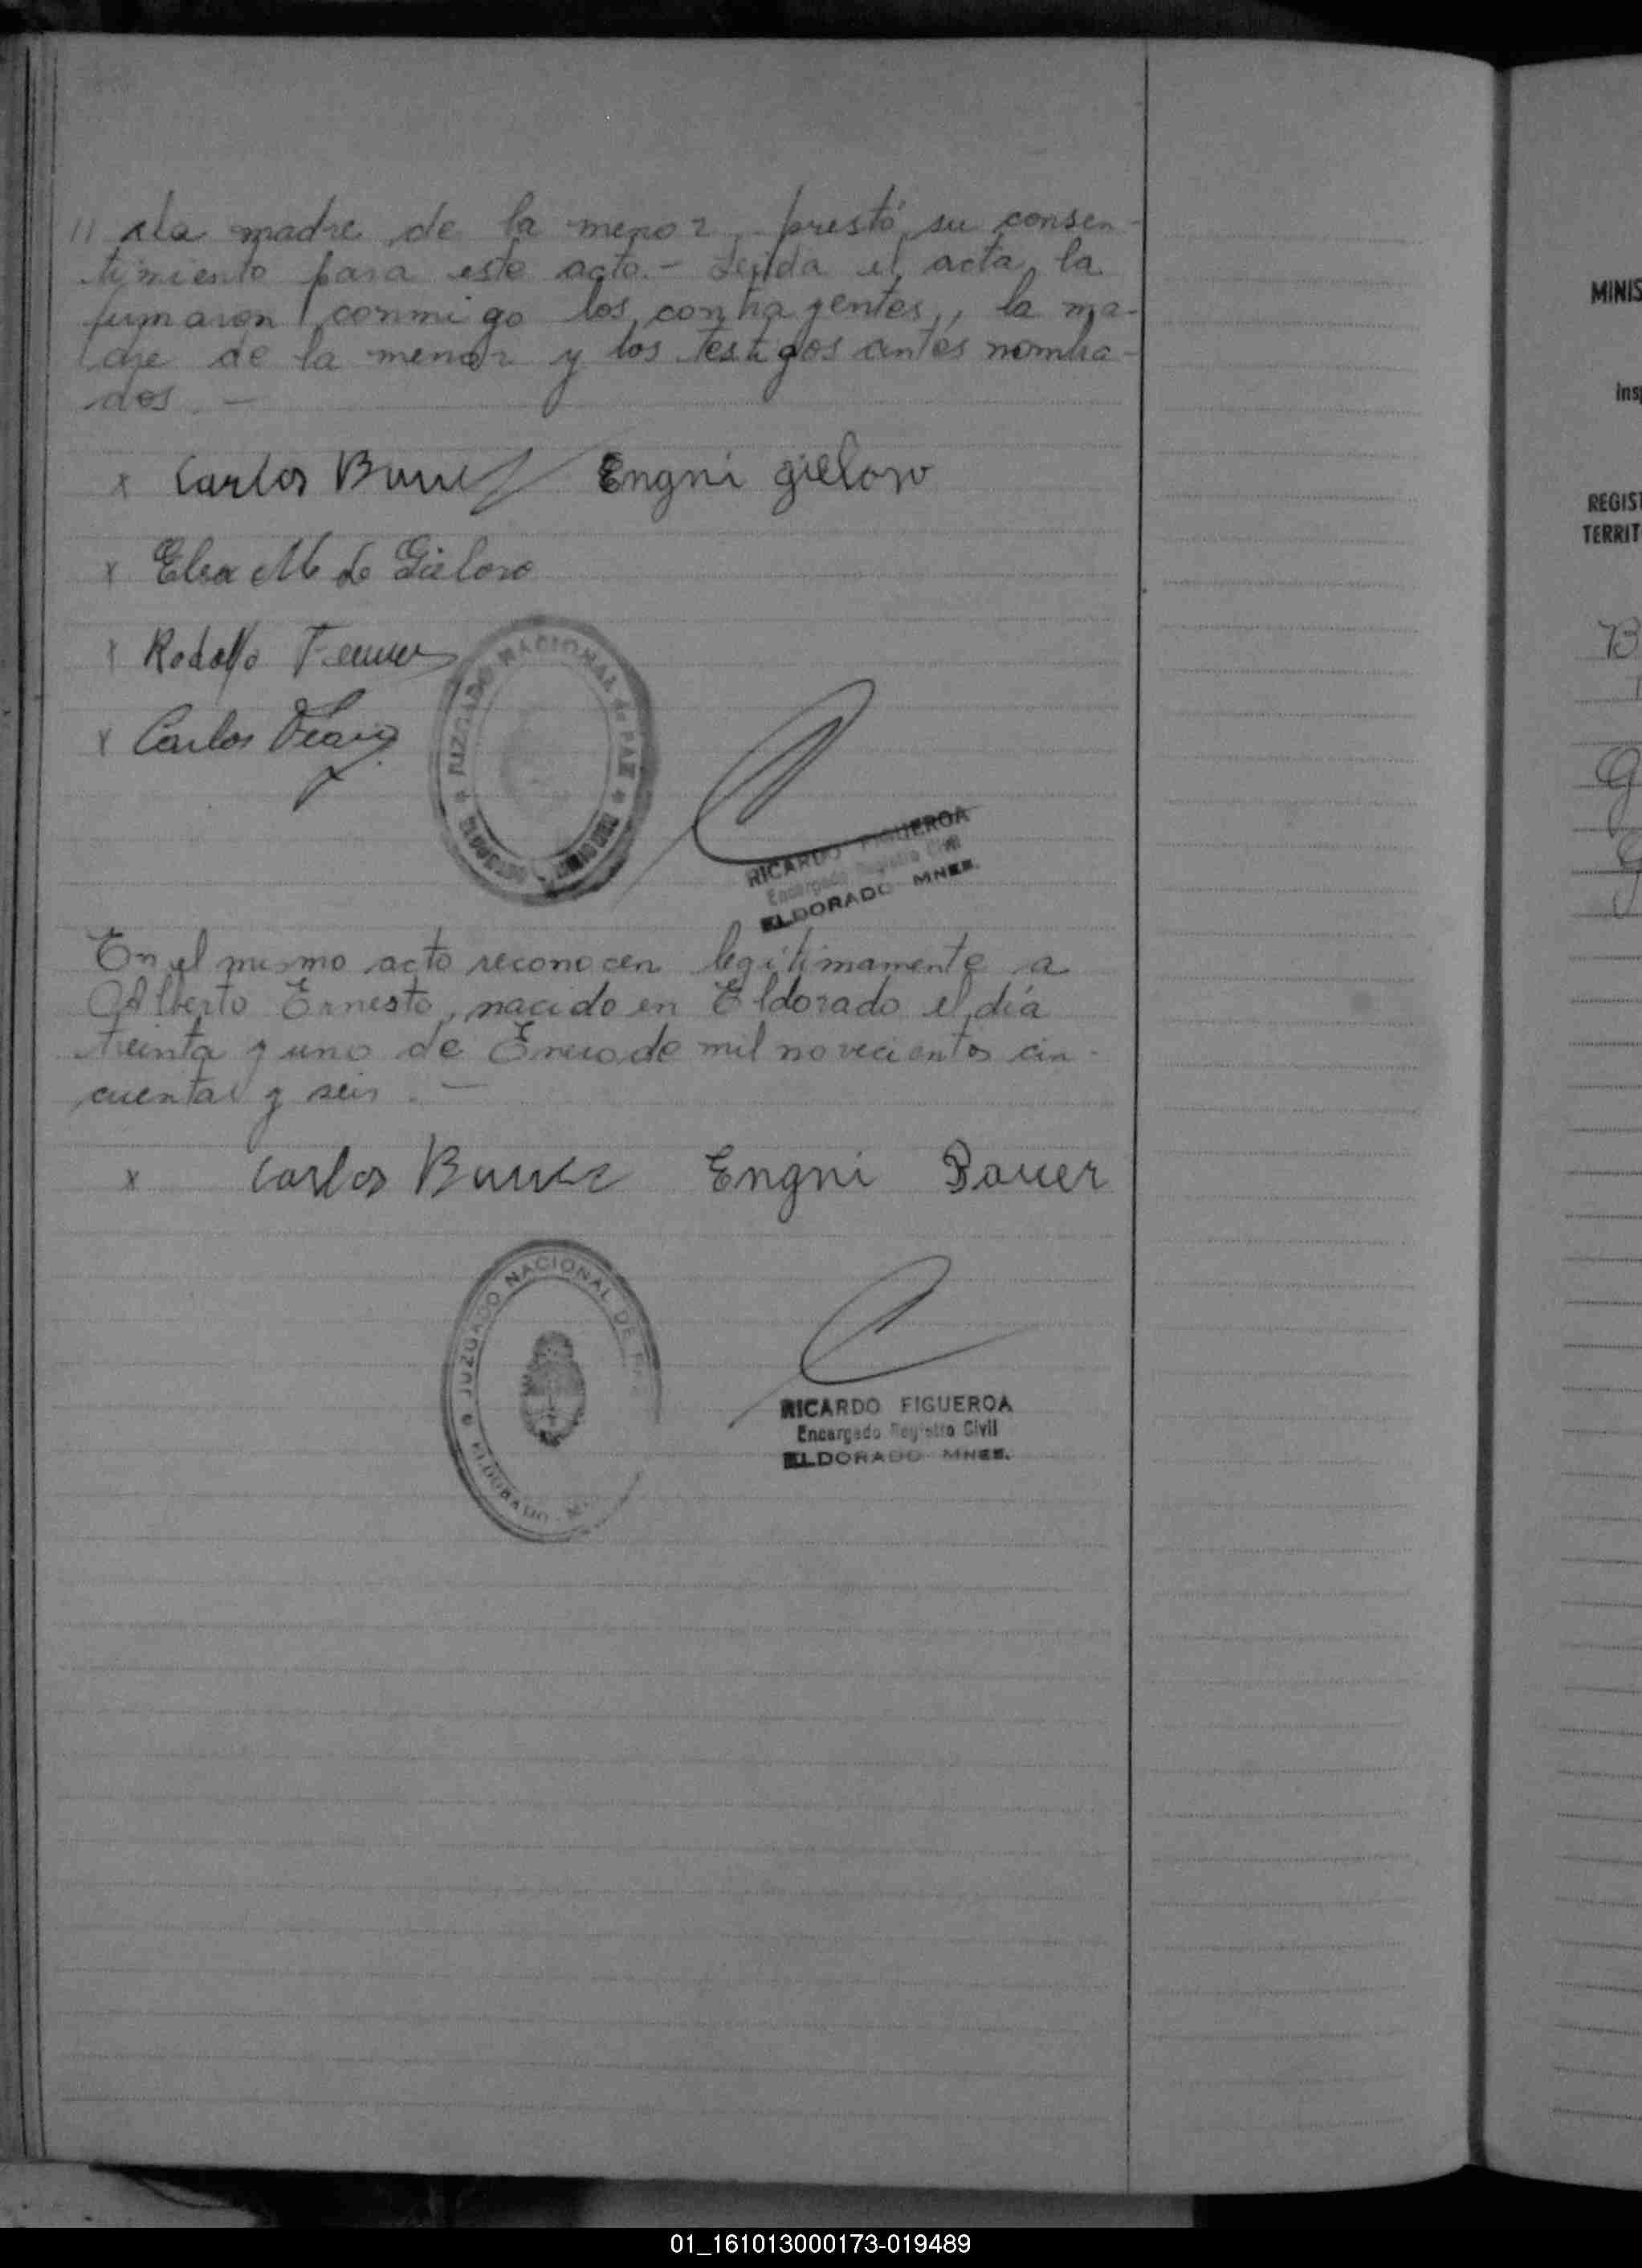 11 La madre de la menor, prestó su consen-
timiento para este acto.- Leída el acta, la
firmaron conmigo los contrayentes, la ma-
dre de la menor y los testigos antes nombra-
dos. -
x Carlos Engni
x Elsa M de Gieloro
x Rodolfo
x Carlos
JUZGADO NACIONAL de PAZ
RICARDO FIGUEROA
Encargado Registro Civil
ELDORADO MNES.
En el mismo acto reconocen legítimamente a
Alberto Ernesto, nacido en Eldorado el día
treinta y uno de Enero de mil novecientos cin-
cuenta y seis. -
x Carlos Engni Bauer
JUZGADO NACIONAL DE
ELDORADO
RICARDO FIGUEROA
Encargado Registro Civil
ELDORADO MNES.
MINIS
Ins
REGIST
TERRIT
01_161013000173-019489